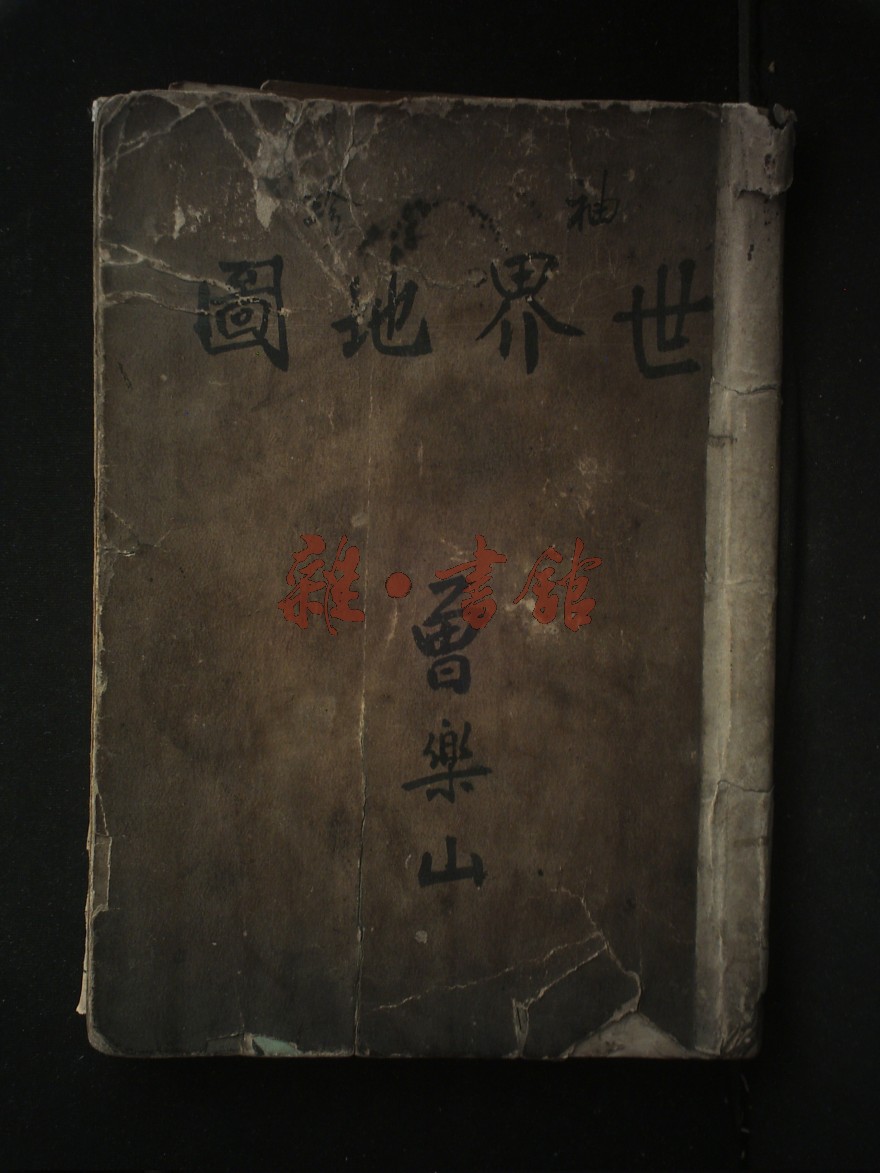 袖珍
世界地圖
雜·書館
曹樂山